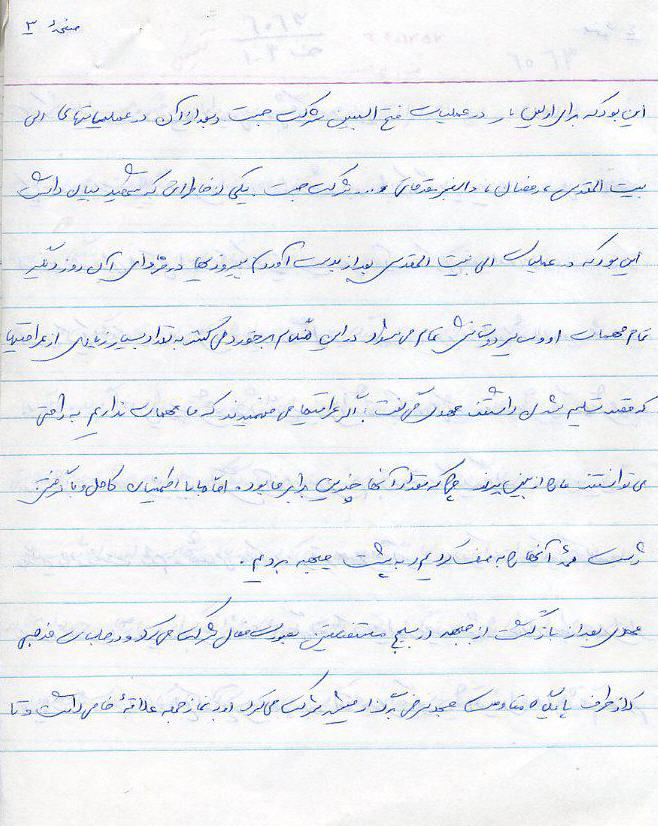 صفحهٔ ۳
این بود که برای اولین بار در عملیات فتح المبین شرکت جست و بعد از آن در عملیاتهای الی
بیت المقدس، رمضان، والفجر مقدماتی و... شرکت جست. یکی از خاطراتی که شهید بیان داشت
این بود که در عملیات الی بیت المقدس بعد از بدست آوردن پیروزیها در فردای آن روز دیگر
تمام مهمات او و سایر دوستانش تمام می‌شود در این هنگام برخورد می‌کنند به تعداد بسیار زیادی از عراقیها
که قصد تسلیم شدن داشتند می‌گفت: اگر عراقیها می‌فهمیدند که ما مهمات نداریم به راحتی
می‌توانستند ما را از بین ببرند چرا که تعداد آنها چندین برابر ما بود. اما ما با اطمینان کامل و با گرفتن
ژست همهٔ آنها را به صف کردیم و به پشت جبهه بردیم.
بعد از بازگشت از جبهه در بسیج مستضعفین بصورت فعال شرکت می‌کرد و در جلساتی مذهبی
که از طرف پایگاه مقاومت برگزار میشد شرکت می‌کرد او به نماز جمعه علاقهٔ خاصی داشت و تا